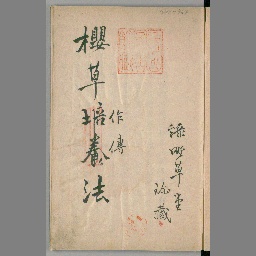 櫻草培養法
作傳
草堂
珍藏